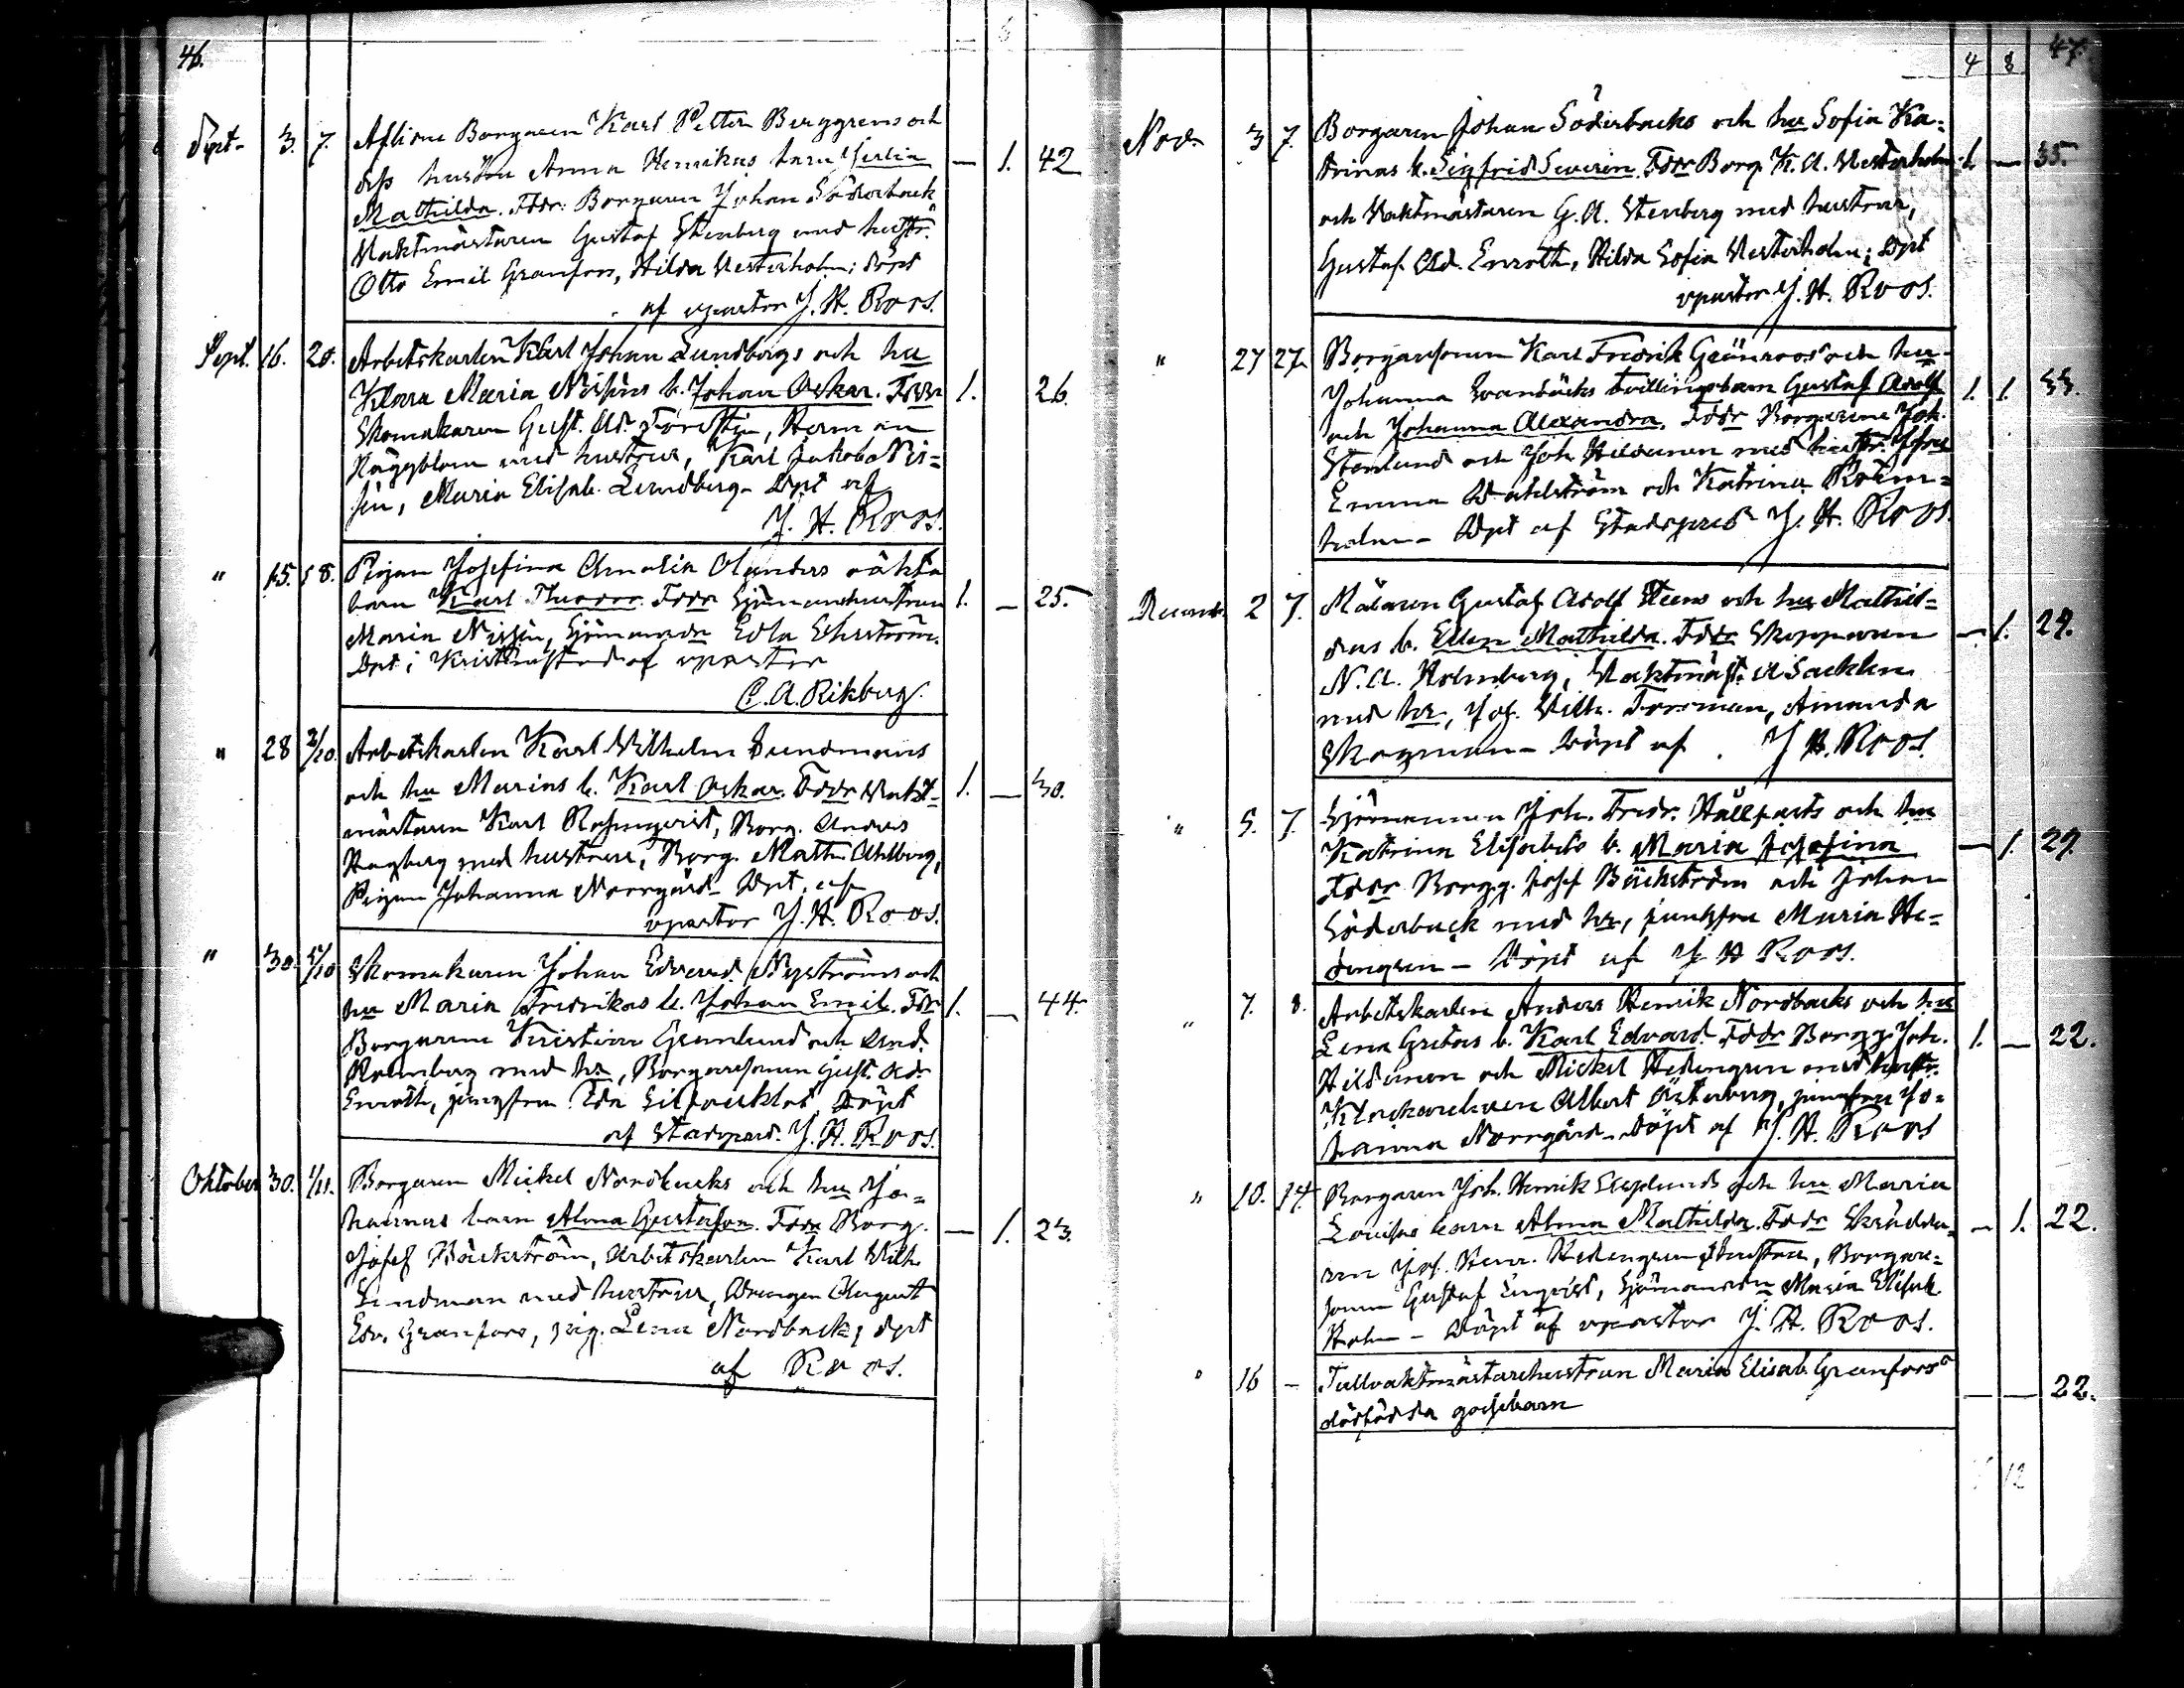 46.
Sept. 3. 7. Aflidne Borgaren Karl Petter Berggrens och
dess hustru Anna Henrikas barn
Mathilda. Fddr: Borgaren Johan Söderback
Vaktmästaren Gustaf Stenberg med hustr.
Otto Emil Granfors, Hilda Vesterholm; döpt
af vpastor J. H. Roos.
— 1. 42
Sept. 16. 20. Arbetskarlen Karl Johan Lundbergs och hu
Klara Maria Nissins b. Johan Oskar. Fddr
Skomakaren Gust. Ad. Forstin, Herman
Häggblom med hustrur, Karl Jakob Nis=
sin, Maria Elisab. Lundberg. Dpt af
J. H. Roos.
1. 26.
" 15. 18. Pigan Josefina Amalia Olanders oäkta
barn Karl Thodor. Fddr Sjömanshustrun
Maria Nissin, Sjömansdr Edla
Dpt i Kristinestad af vpastor
C. A. Rikberg.
1. — 25.
" 28 2/10. Arbetskarlen Karl Vilhelm Sundmans
och hu Marias b. Karl Oskar. Fddr Vakt-
mästaren Karl Rosenqvist, Borg. Anders
Hagberg med hustrur, Borg. Matth. Ahlberg,
Pigan Johanna Norrgård. Dpt. af
vpastor J. H. Roos.
1. — 30.
" 30. 5/10 Skomakaren Johan Edvard Nyströms och
hu Maria Fredrikas b. Johan Emil. Fddr
Borgarene Kristian Grönlund och And.
Holmberg med hr, Borgaresonen Gust. Ad.
Enroth, jungfrun Ida Silfvuklot, Döpt
af Stadspred. J. H. Roos.
1. — 44.
Oktober 30. 1/11. Borgaren Mickel Nordbacks och hu Jo=
hannas barn Alma Gustafva. Fddr Borg.
Josef Bäckström, Arbetskarlen Karl Vilh.
Sundman med hustrur, Drängen August
Edv. Granfors, pig. Lena Nordback; dpt
af Roos.
— 1. 23.
4 8 47.
Nov. 3 7. Borgaren Johan Söderbacks och hu Sofia Ka=
trinas b. Sigfrid Severin. Fddr Borg. K. A. Vesterholm
och Vaktmästaren G. A. Stenberg med hustrur,
Gustaf Ad. Enroth, Hilda Sofia Vesterholm; Dpt
vpastor J. H. Roos.
1. — 35.
" 27 27. Borgaresonen Karl Fredrik Grönroos' och hu
Johanna Svanbäcks tvillingsbarn Gustaf Adolf
och Johanna Alexandra. Fddr Borgarene Joh.
Stenlund och Joh. Hildunen med hustr.
Emma Wahlström och Katrina Holm=
holm — Dpt af Stadspred J. H. Roos.
1. 1. 33.
Decemb. 2 7. Målaren Gustaf Adolf Steens och hu Mathil=
das b. Ellen Mathilda. Fddr Skepparen
N. A. Holmberg, Vaktmäst. A Sacklen
med hr, Jos. Vilh. Forsman, Amanda
Skogman — Döpt af J H. Roos.
— 1. 29.
" 5. 7. Sjömannen Joh. Fredr. Hällfasts och hu
Katrina Elisabets b. Maria Josefina
Fddr Borgg. Josef Bäckström och Johan
Söderback med hr, jungfru Maria He=
dengren — Döpt af J. H Roos.
— 1. 29.
" 7. 8. Arbetskarlen Anders Henrik Nordbacks och hu
Lena Gretas b. Karl Edvard. Fddr Borgg. Joh.
Hildunen och Mickel Hedengren med hustr.
Klockaresonen Albert Österberg, jungfrun Jo=
hanna Norrgård. Döpt af J. H. Roos
1. — 22.
" 10. 14. Borgaren Joh. Henrik Asplunds och hu Maria
Lovisas barn Alma Mathilda. Fddr Skrädda=
ren Jos. Henr. Hedengren & hustru, Borgare=
sonen Gustaf Enqvist, Sjömansdn Maria Elisab.
Holm — Döpt af vpastor J. H. Roos.
— 1. 22.
" 16 — Tullvaktmästarehustrun Maria Elisab. Granfors'
dödfödda gossebarn
— — 22.
12